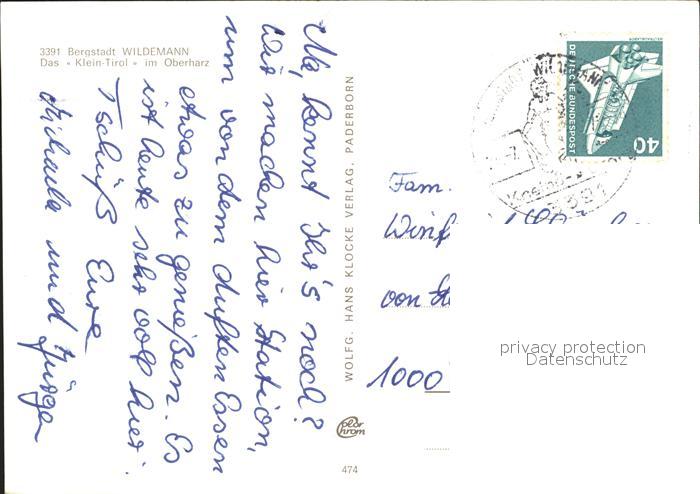 3391 Bergstadt WILDEMANN
Das « Klein-Tirol » im Oberharz
Na, kennt Ihr's noch?
Wir machen hier Station,
um von dem duften Essen
etwas zu genießen. Es
ist heute sehr voll hier.
Tschüß Eure
Michaela und Jürgen
WOLFG. HANS KLOCKE VERLAG, PADERBORN
color chrom
474
DEUTSCHE BUNDESPOST
40
Fam.
1000
privacy protection
Datenschutz